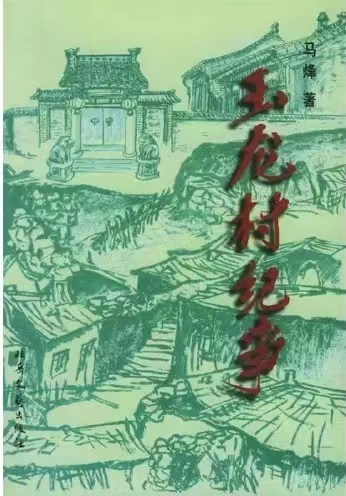 马烽 著
玉龙村纪事
北岳文艺出版社